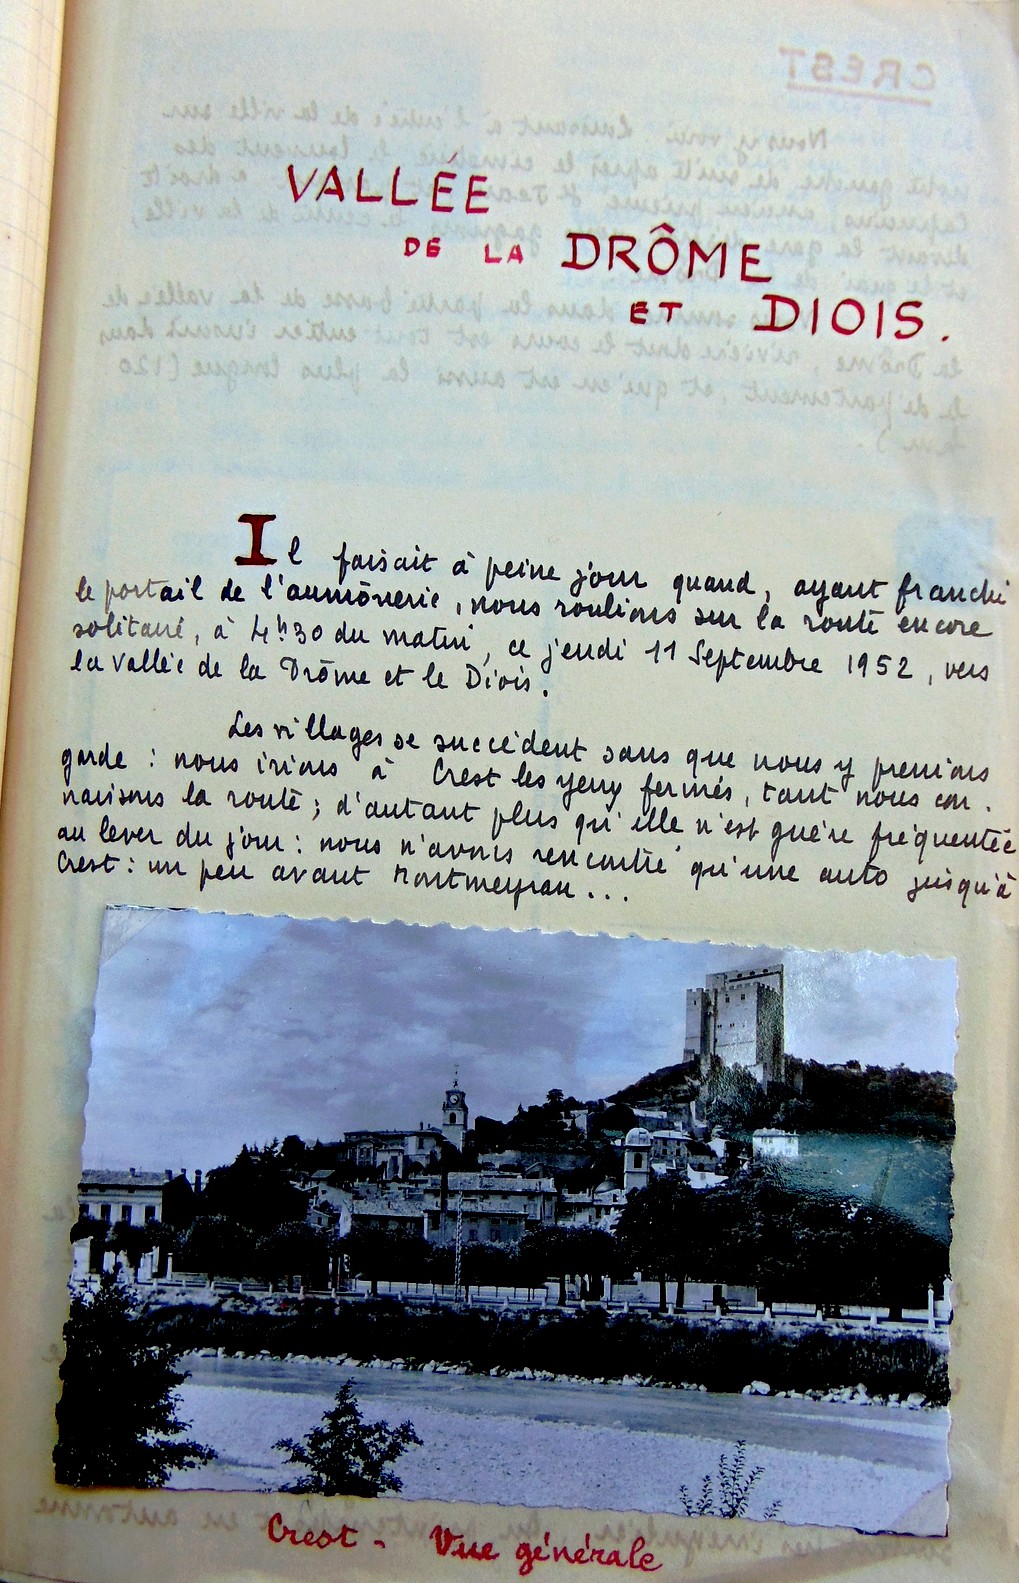 VALLÉE
DE LA DRÔME
ET DIOIS.
Il faisait à peine jour quand, ayant franchi
le portail de l'aumônerie, nous roulions sur la route encore
solitaire, à 4h30 du matin, ce jeudi 11 Septembre 1952, vers
la Vallée de la Drôme et le Diois.
Les villages se succèdent sans que nous y prenions
garde : nous irions à Crest les yeux fermés, tant nous con-
naissons la route ; d'autant plus qu'elle n'est guère fréquentée
au lever du jour : nous n'avons rencontré qu'une auto jusqu'à
Crest : un peu avant Montmeyran...
Crest - Vue générale